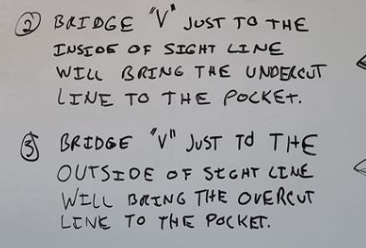 ② BRIDGE "V" JUST TO THE
INSIDE OF SIGHT LINE
WILL BRING THE UNDERCUT
LINE TO THE POCKET.
③ BRIDGE "V" JUST TO THE
OUTSIDE OF SIGHT LINE
WILL BRING THE OVERCUT
LINE TO THE POCKET.